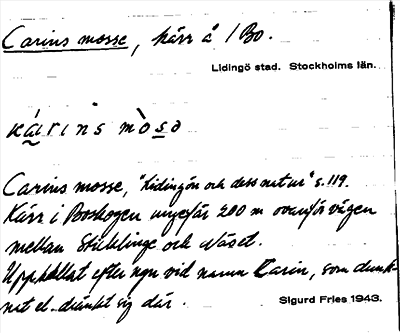 Carins mosse, kärr å 1 Bo.
Lidingö stad. Stockholms län.
kárins mòsə
Carins mosse, "Lidingön och dess natur" s. 119.
Kärr i Boskogen ungefär 200 m ovanför vägen
mellan Sticklinge och Näset.
Uppkallat efter ngn vid namn Carin, som drunk-
nat el. dränkt sig där.
Sigurd Fries 1943.